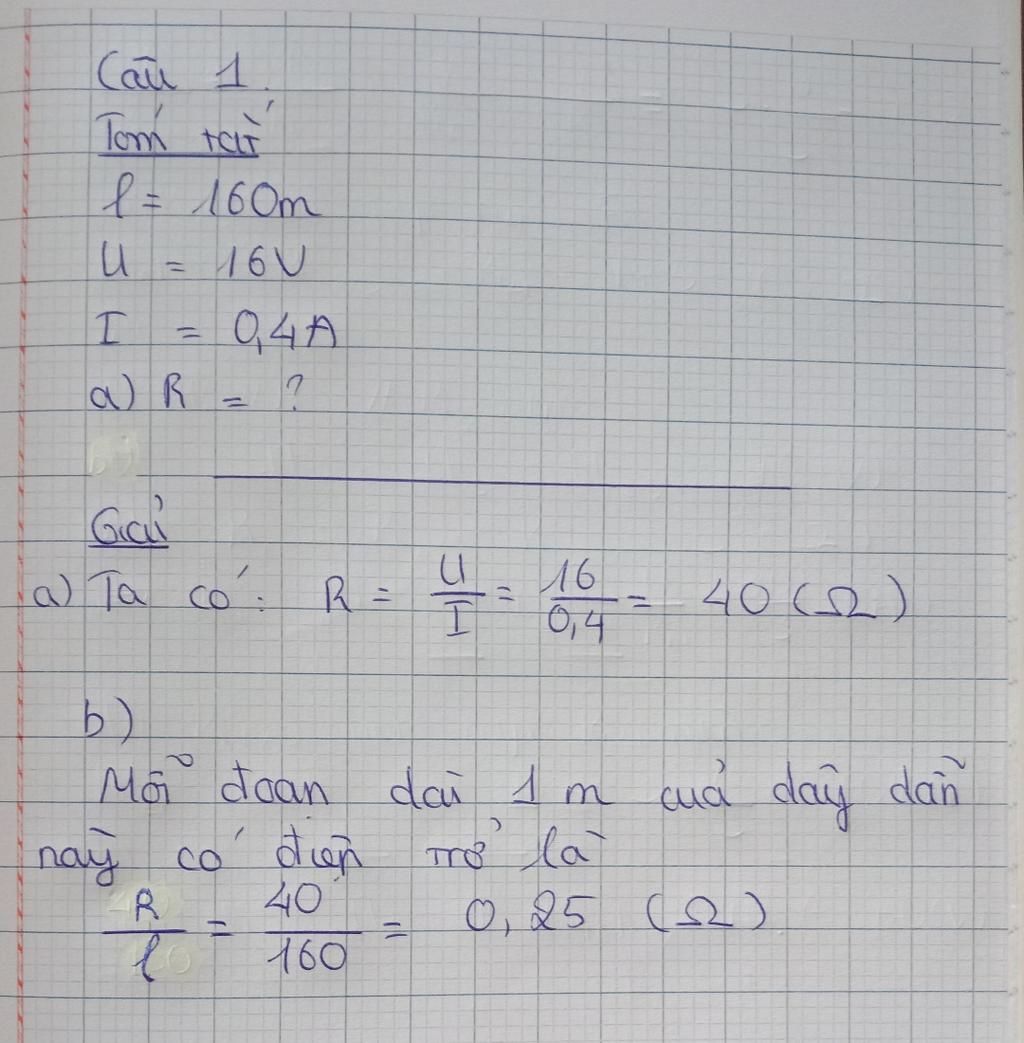 Câu 1.
Tóm tắt
l = 160m
U = 16V
I = 0,4A
a) R = ?
Giải
a) Ta có: R = U/I = 16/0,4 = 40 (Ω)
b)
Mỗi đoạn dài 1 m của dây dẫn
này có điện trở là
R/l = 40/160 = 0,25 (Ω)